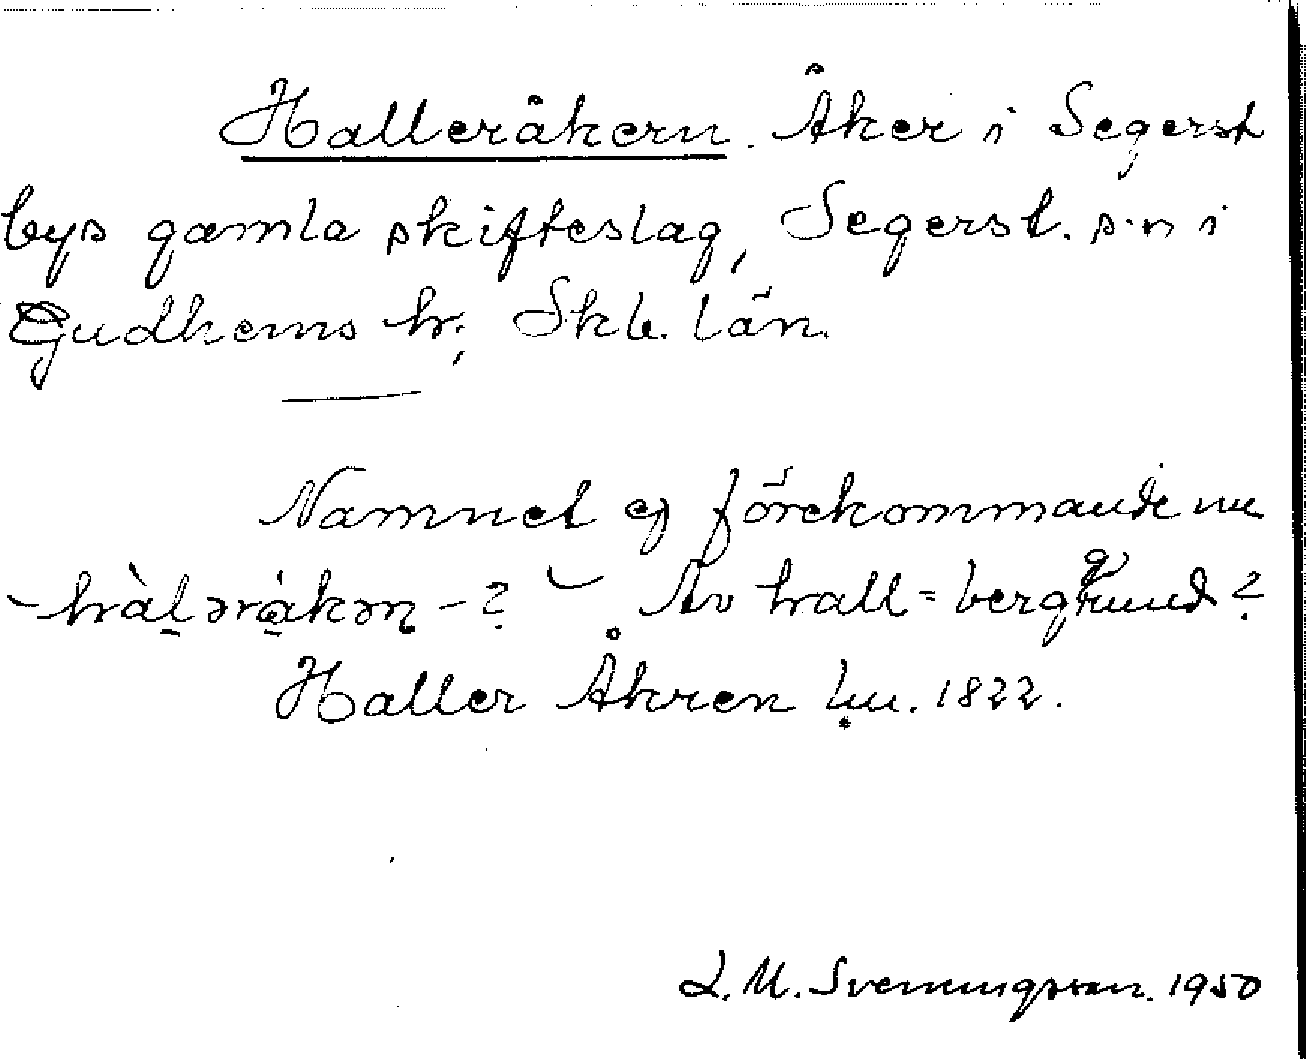 Halleråkern. Åker i Segerst
bys gamla skifteslag, Segerst. s:n i
Gudhems hr, Skb. län.
Namnet ej förekommande nu
Av hall = berggrund?
Haller Åkren hu. 1822.
L. M. Svenungsson. 1950